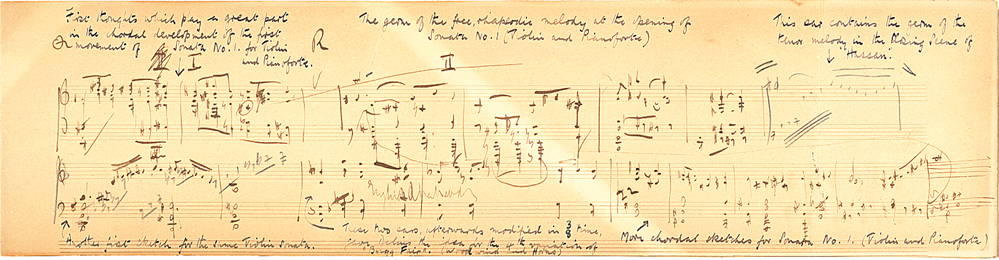 First thoughts which play a great part
in the chordal development of the first
movement of Sonata No. 1. for Violin
and Pianoforte.
The germ of the free, rhapsodic melody at the opening of
Sonata No. 1 (Violin and Pianoforte)
This bar contains the germ of the
tenor melody in the Closing Scene of
Hassan!
R
II
II
Another first sketch for the same Violin Sonata.
These two bars, afterwards modified in 3/4 time,
the 4th variation of
Brigg Fair. (Wood wind and Horns)
More chordal sketches for Sonata No. 1. (Violin and Pianoforte)